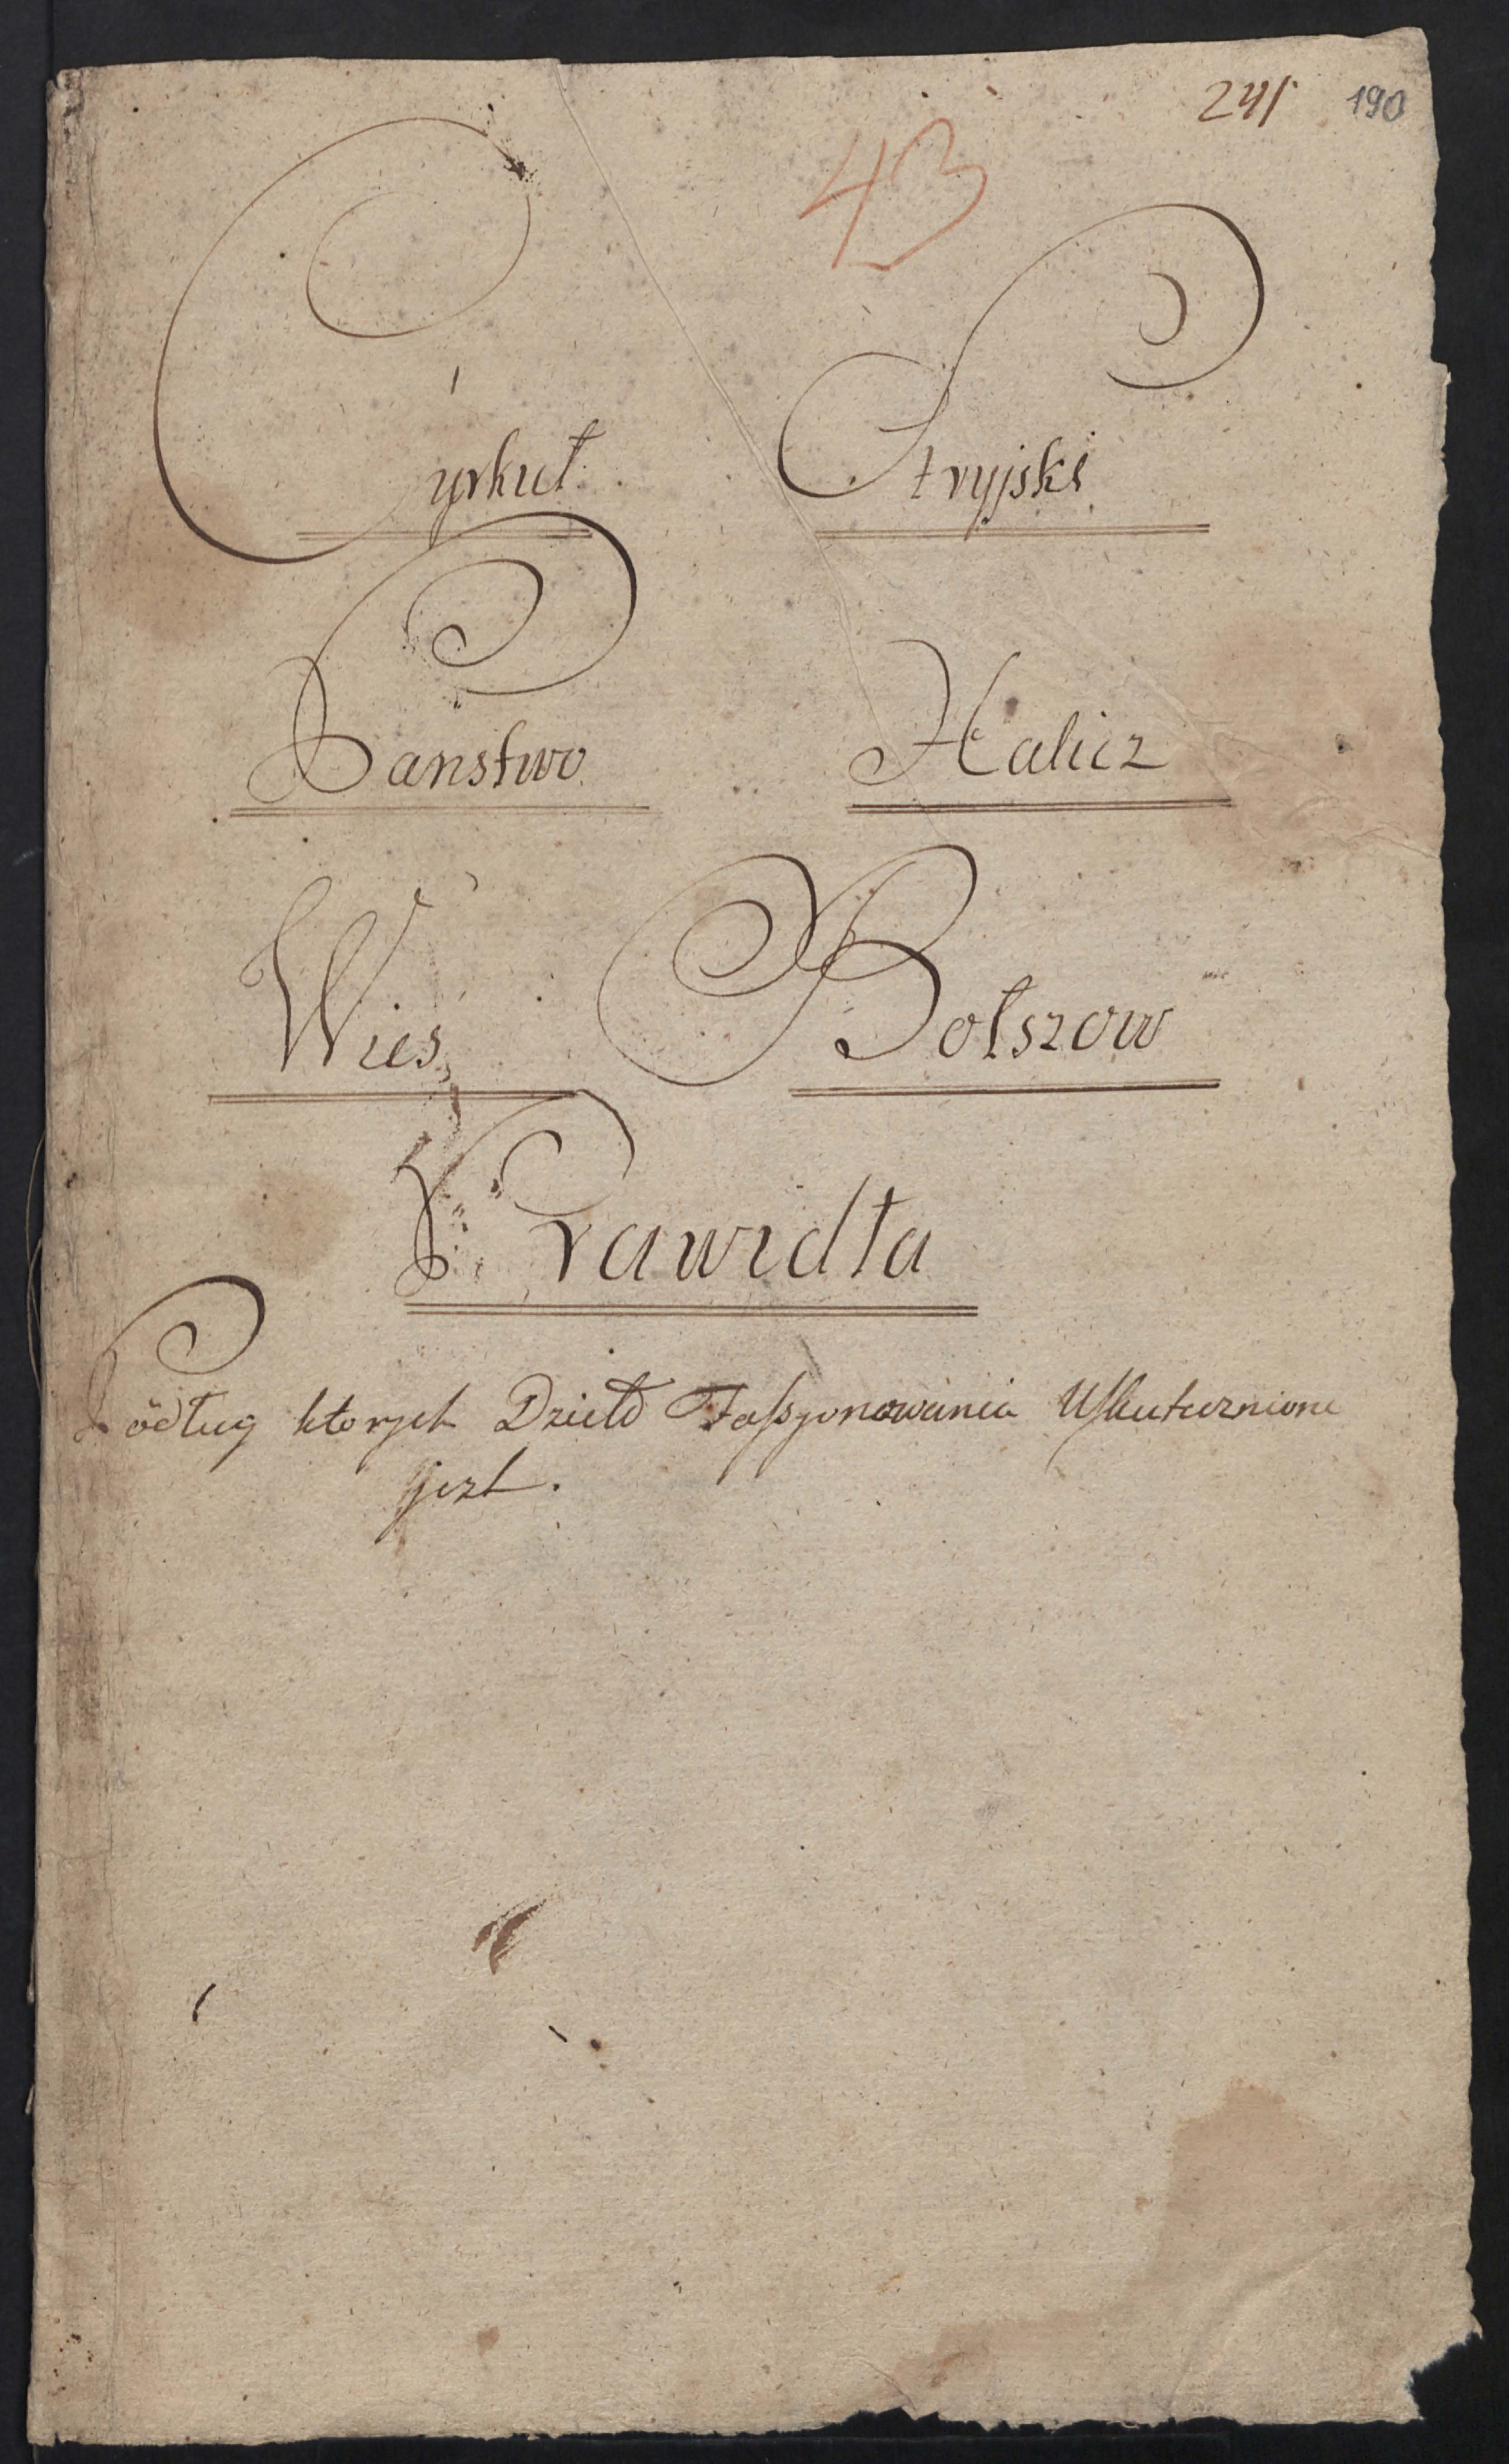 241 190
43
Cyrkuł Stryjski
Panstwo Halicz
Wies Bołszow
Prawidła
Podług ktorych Dzieło Faſsyonowania Uſkutecznione
jezt.